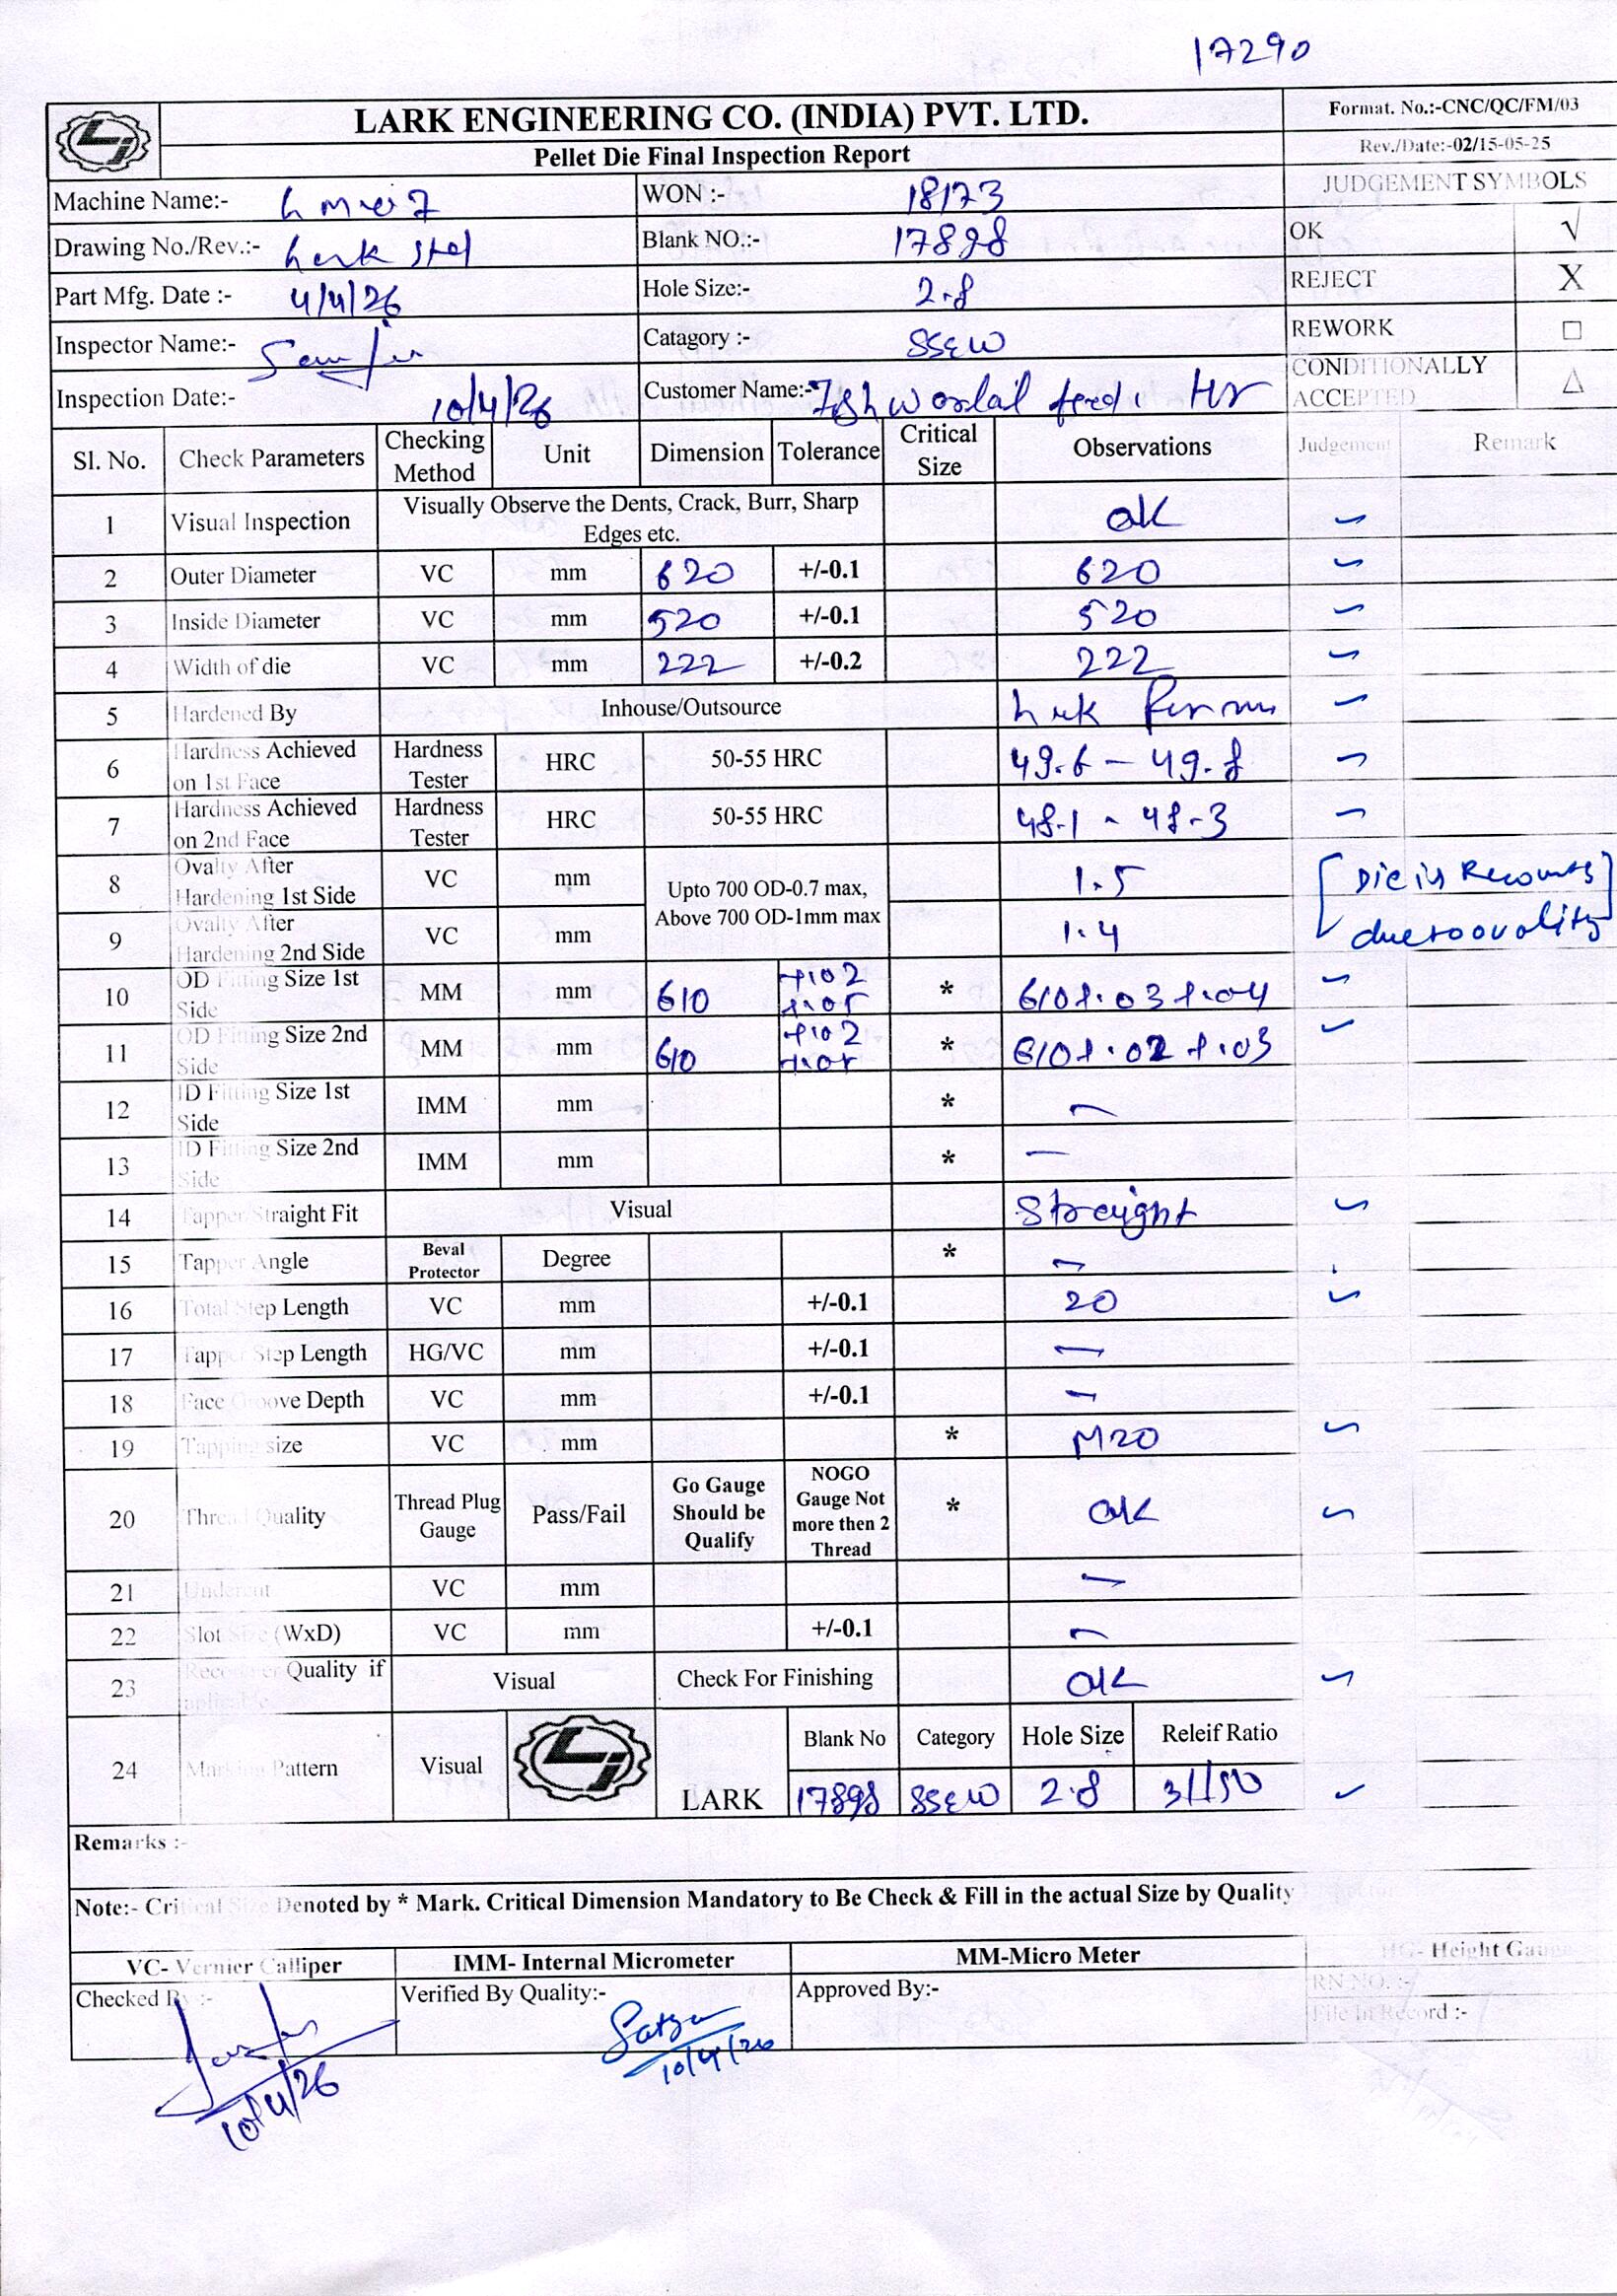 17290
LARK ENGINEERING CO. (INDIA) PVT. LTD.
Format. No.:-CNC/QC/FM/03
Pellet Die Final Inspection Report
Rev./Date:-02/15-05-25
Machine Name:- WON :- 18173 JUDGEMENT SYMBOLS
Drawing No./Rev.:- Lark Blank NO.:- 17898 OK √
Part Mfg. Date :- 4/4/26 Hole Size:- 2.8 REJECT X
Inspector Name:- Catagory :- SSEW REWORK □
Inspection Date:- 10/4/26 Customer Name:- feed CONDITIONALLY ACCEPTED △
Sl. No. Check Parameters Checking Method Unit Dimension Tolerance Critical Size Observations Judgement Remark
1 Visual Inspection Visually Observe the Dents, Crack, Burr, Sharp Edges etc. OK
2 Outer Diameter VC mm 620 +/-0.1 620
3 Inside Diameter VC mm 520 +/-0.1 520
4 Width of die VC mm 222 +/-0.2 222
5 Hardened By Inhouse/Outsource
6 Hardness Achieved on 1st Face Hardness Tester HRC 50-55 HRC 49.6 - 49.8
7 Hardness Achieved on 2nd Face Hardness Tester HRC 50-55 HRC 48.1 - 48.3
8 Ovalty After Hardening 1st Side VC mm Upto 700 OD-0.7 max, Above 700 OD-1mm max 1.5 Die is
9 Ovalty After Hardening 2nd Side VC mm 1.4 due to ovality
10 OD Fitting Size 1st Side MM mm 610 +.02 +.05 * 610+.03+.04
11 OD Fitting Size 2nd Side MM mm 610 +.02 +.05 * 610+.02+.03
12 ID Fitting Size 1st Side IMM mm * —
13 ID Fitting Size 2nd Side IMM mm * —
14 Tapper Straight Fit Visual Streight
15 Tapper Angle Beval Protector Degree * —
16 Total Step Length VC mm +/-0.1 20
17 Tapper Step Length HG/VC mm +/-0.1 —
18 Face Groove Depth VC mm +/-0.1 —
19 Tapping size VC mm * M20
20 Thread Quality Thread Plug Gauge Pass/Fail Go Gauge Should be Qualify NOGO Gauge Not more then 2 Thread * OK
21 Undercut VC mm —
22 Slot Size (WxD) VC mm +/-0.1 —
23 Recounter Quality if aplicable Visual Check For Finishing OK
24 Marking Pattern Visual LARK Blank No Category Hole Size Releif Ratio
17898 SSEW 2.8
Remarks :-
Note:- Critical Size Denoted by * Mark. Critical Dimension Mandatory to Be Check & Fill in the actual Size by Quality
VC- Vernier Calliper IMM- Internal Micrometer MM-Micro Meter HG- Height Gauge
Checked By :- Verified By Quality:- Approved By:- RN NO. :-
File In Record :-
10/4/26
10/4/26